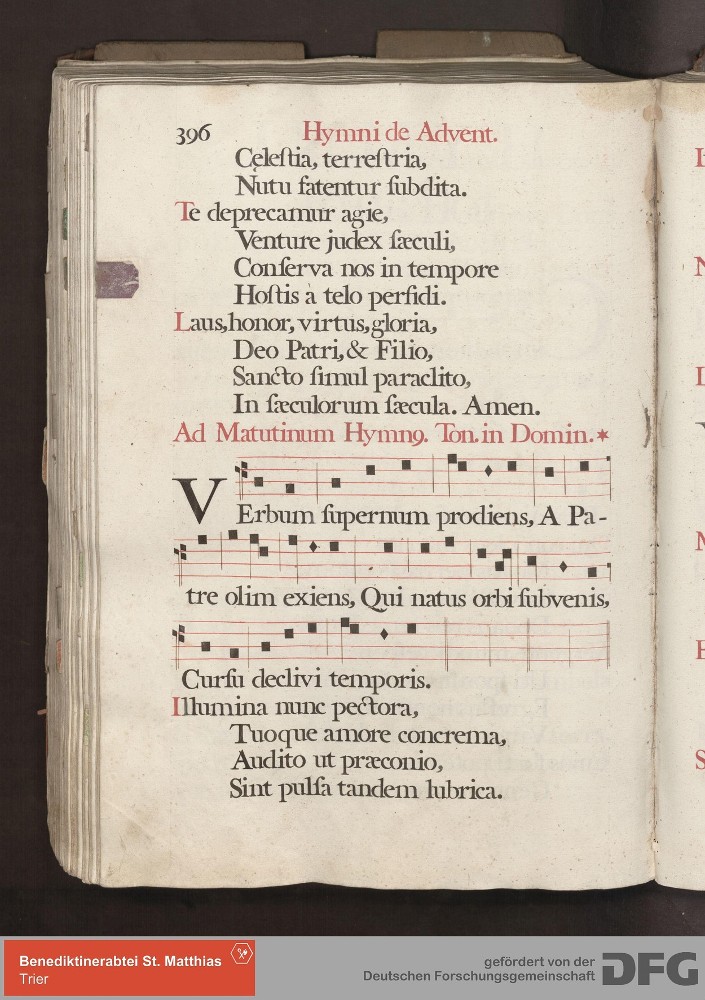 396 Hymni de Advent.
Cęleſtia, terreſtria,
Nutu fatentur ſubdita.
Te deprecamur agie,
Venture judex ſæculi,
Conſerva nos in tempore
Hoſtis à telo perfidi.
Laus, honor, virtus, gloria,
Deo Patri, & Filio,
Sancto ſimul paraclito,
In ſæculorum ſæcula. Amen.
Ad Matutinum Hymnꝰ. Ton. in Domin. *
VErbum ſupernum prodiens, A Pa-
tre olim exiens, Qui natus orbi ſubvenis,
Curſu declivi temporis.
Illumina nunc pectora,
Tuoque amore concrema,
Audito ut præconio,
Sint pulſa tandem lubrica.
Benediktinerabtei St. Matthias
Trier
gefördert von der
Deutschen Forschungsgemeinschaft
DFG